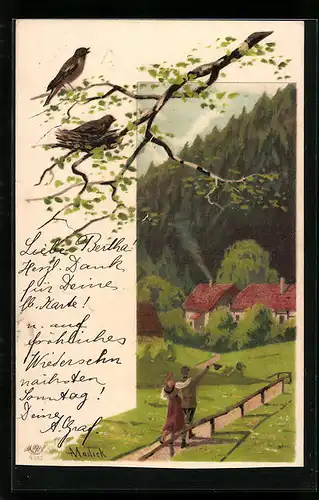 Liebe Bertha!
Herzl. Dank
für Deine
lb. Karte!
u. auf
fröhliches
Wiedersehn
nächsten
Sonntag!
Deine
A. Graf
A Mailick